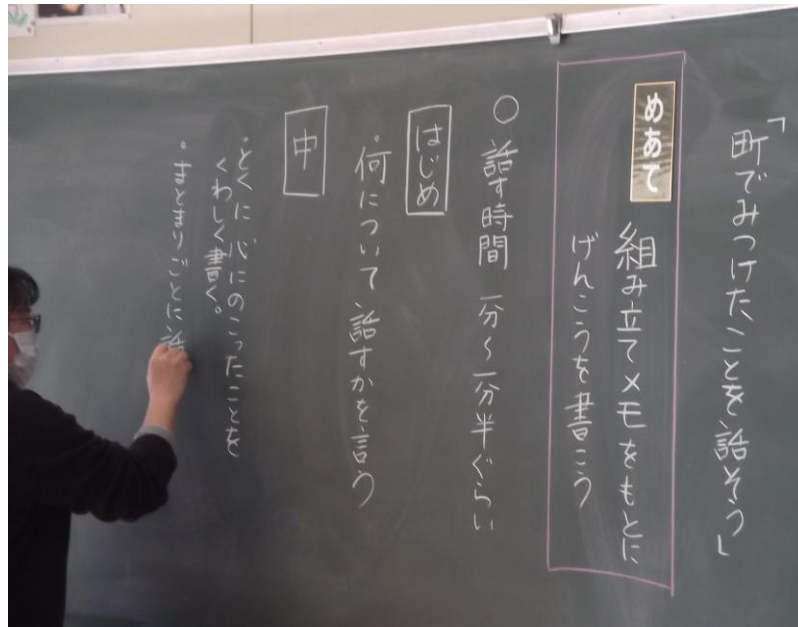 「町でみつけたことを話そう」
めあて
組み立てメモをもとに
げんこうを書こう
○ 話す時間 一分〜一分半ぐらい
はじめ
・何について話すかを言う
中
・とくに心にのこったことを
くわしく書く。
・まとまりごとに